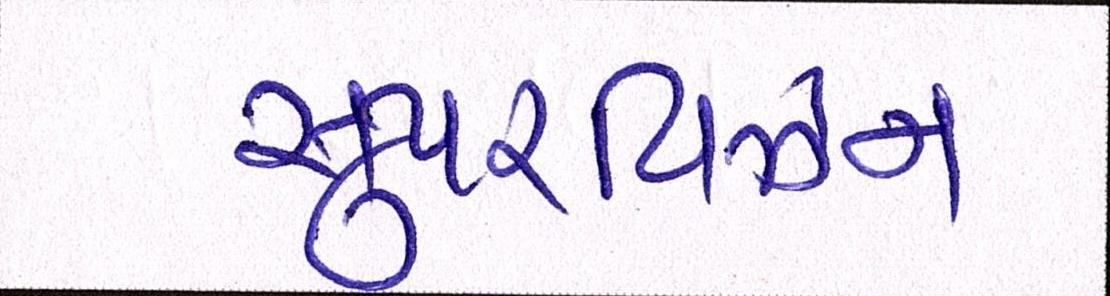 સુપરવિઝન